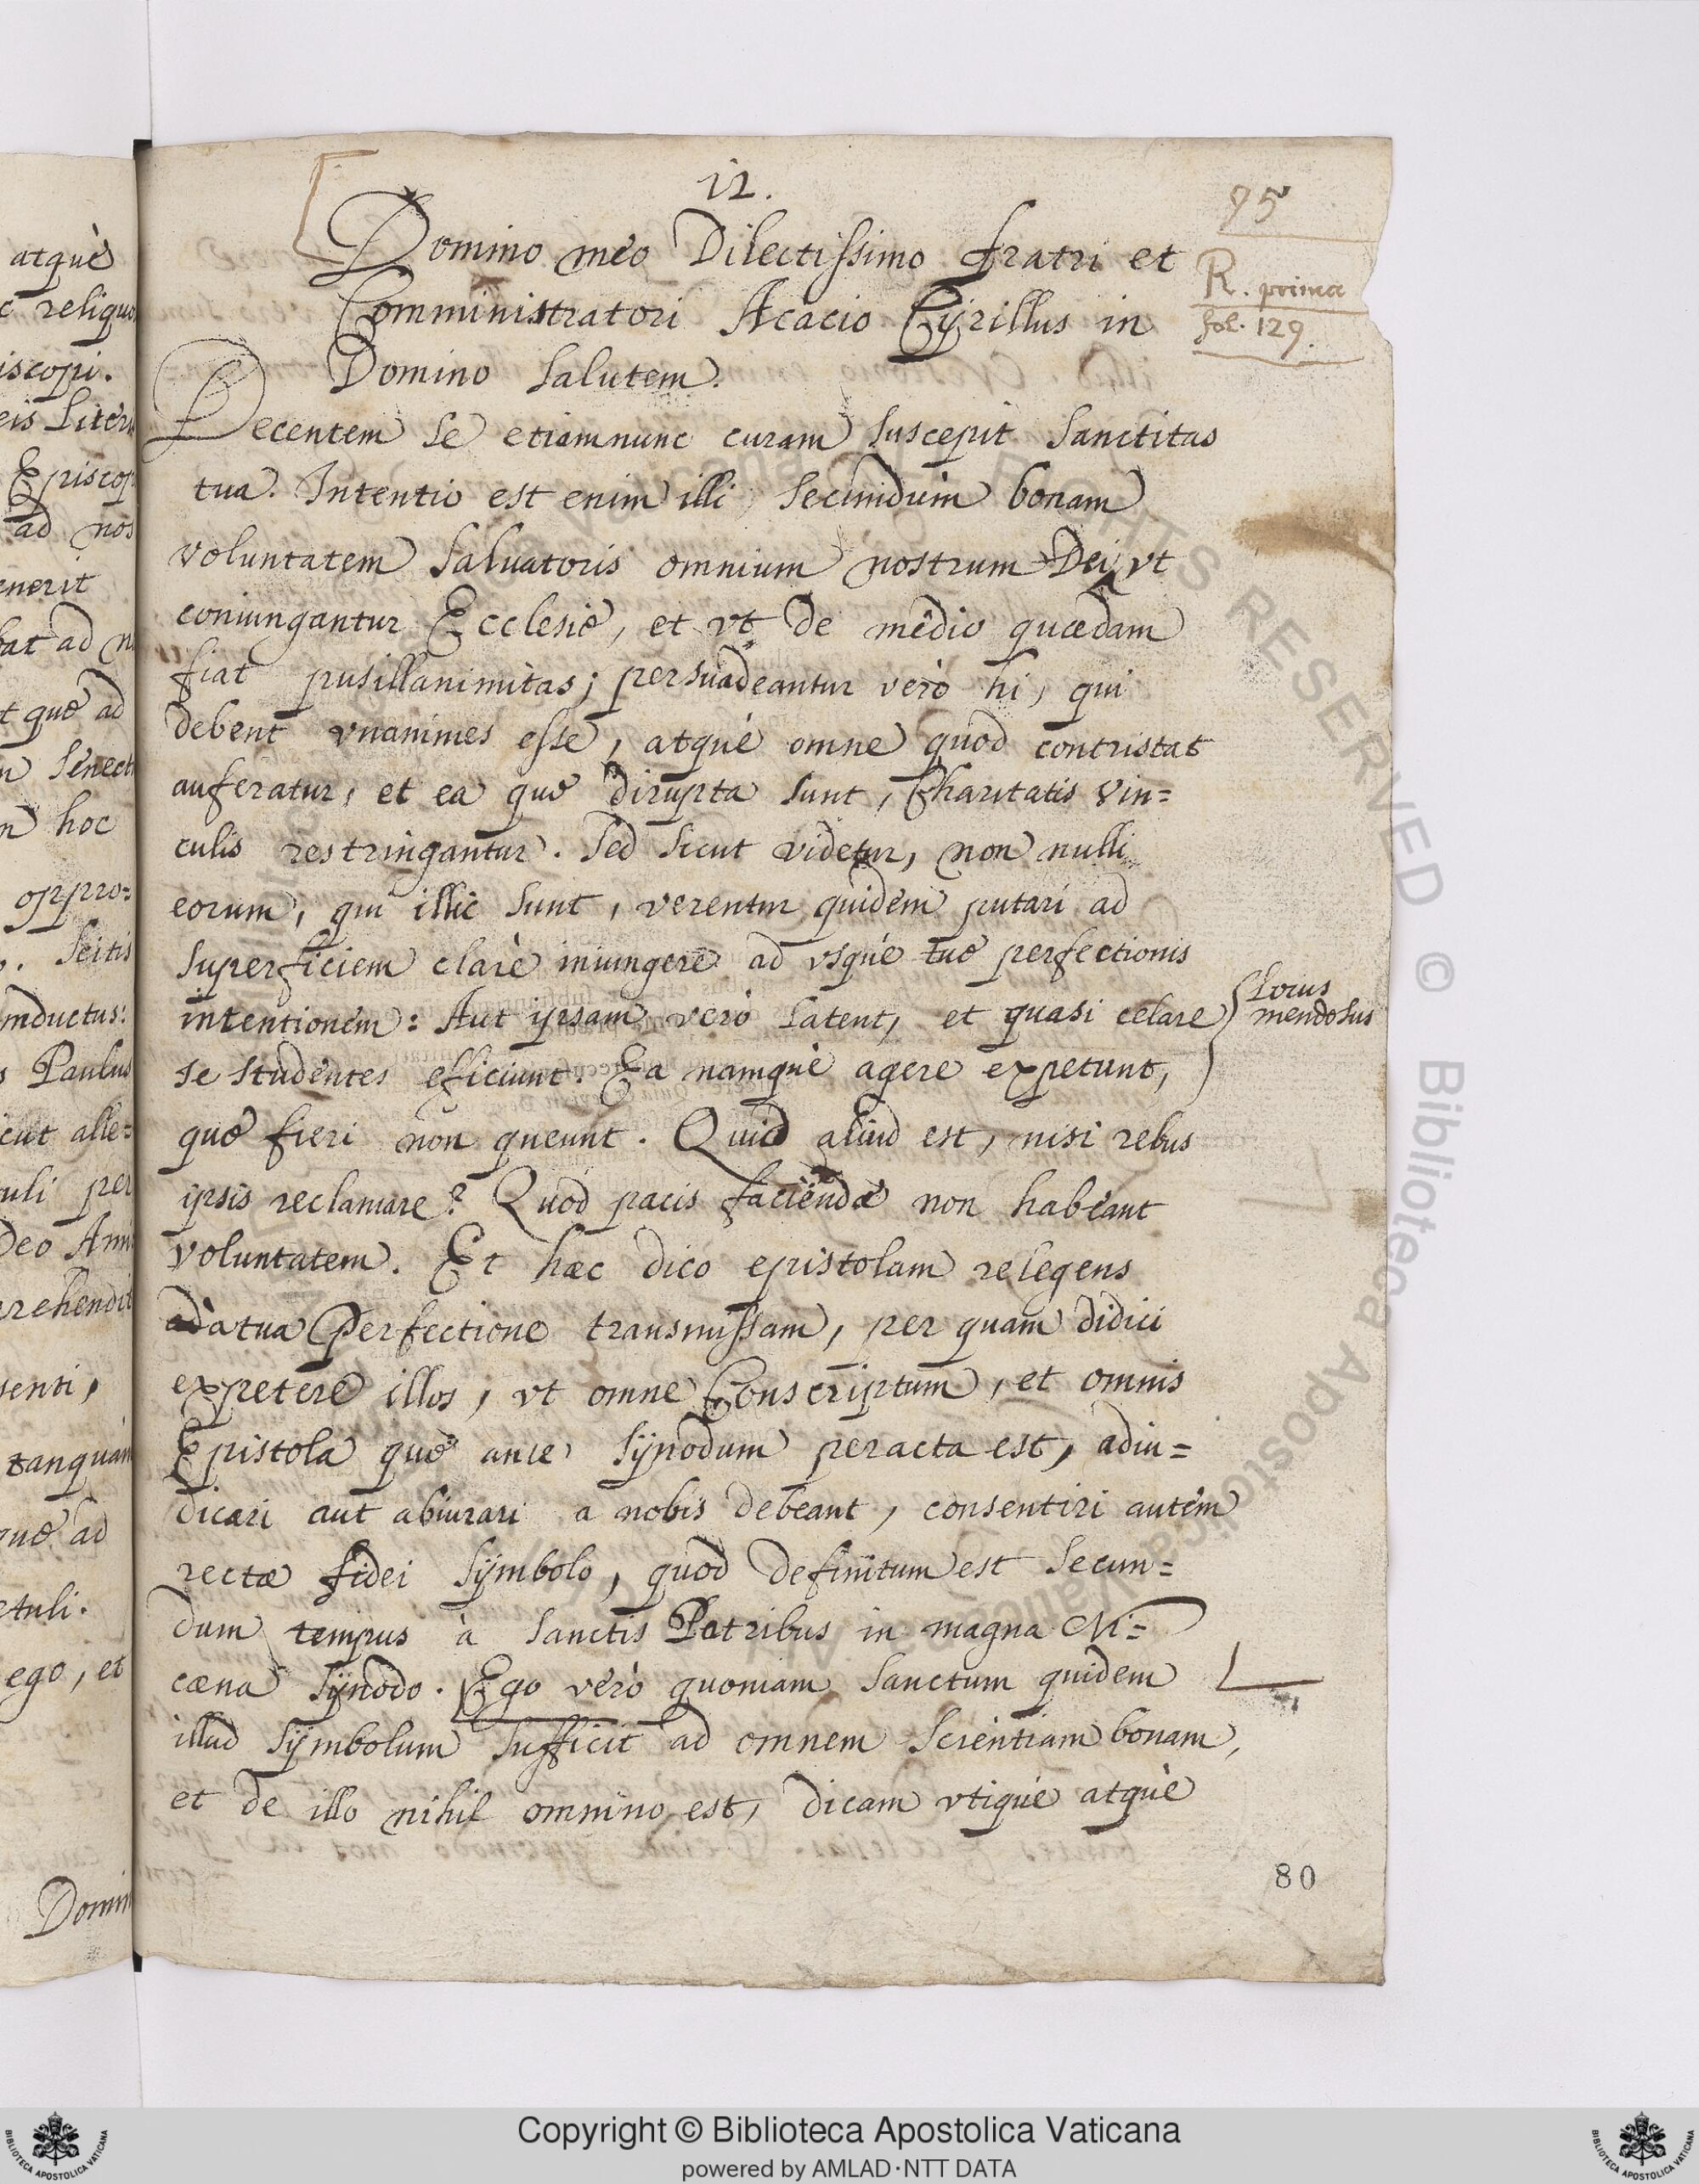 12.
95
Domino meo Dilectissimo fratri et
Comministratori Acacio Cyrillus in
Domino Salutem.
R. prima
fol. 129.
Decentem se etiamnunc curam suscepit Sanctitas
tua. Intentio est enim illi secundum bonam
voluntatem Saluatoris omnium nostrum Dei, vt
coniungantur Ecclesię, et vt de medio quædam
fiat pusillanimitas; persuadeantur verò hi, qui
debent vnanimes esse, atquè omne quod contristat
auferatur, et ea quę dirupta sunt, Charitatis Vin=
culis restringantur. Sed sicut videtur, non nulli
eorum, qui illic sunt, verentur quidem putari ad
superficiem clarè iniungere ad vsquè tuę perfectionis
intentionem: Aut ipsam verò latent, et quasi celare
Locus
mendosus
se studentes eficiunt. Ea namquè agere expetunt,
quę fieri non queunt. Quid aliud est, nisi rebus
ipsis reclamare? Quod pacis faciendæ non habeant
voluntatem. Et hæc dico epistolam relegens
à tua Perfectione transmissam, per quam didici
expetere illos, vt omne Conscriptum, et omnis
Epistola quę ante Synodum peracta est, adiu=
dicari aut abiurari a nobis debeant, consentiri autem
rectæ fidei Symbolo, quod definitum est secun=
dum tempus à Sanctis Patribus in magna Ni=
cæna Synodo. Ego verò quoniam Sanctum quidem
illud Symbolum sufficit ad omnem Scientiam bonam,
et de illo nihil omnino est, dicam vtiquè atquè
80
atquè
reliquo
iscopi.
eis Liter
Episcop
ad nos
enerit
bat ad n
t quę ad
Senect
hoc
oppro=
Scitis
nductus:
Paulus
cut alle=
uli per
Deo Ami
rehendit
senti,
tanquàm
quę ad
etuli.
ego, et
Domin
Copyright © Biblioteca Apostolica Vaticana
powered by AMLAD·NTT DATA